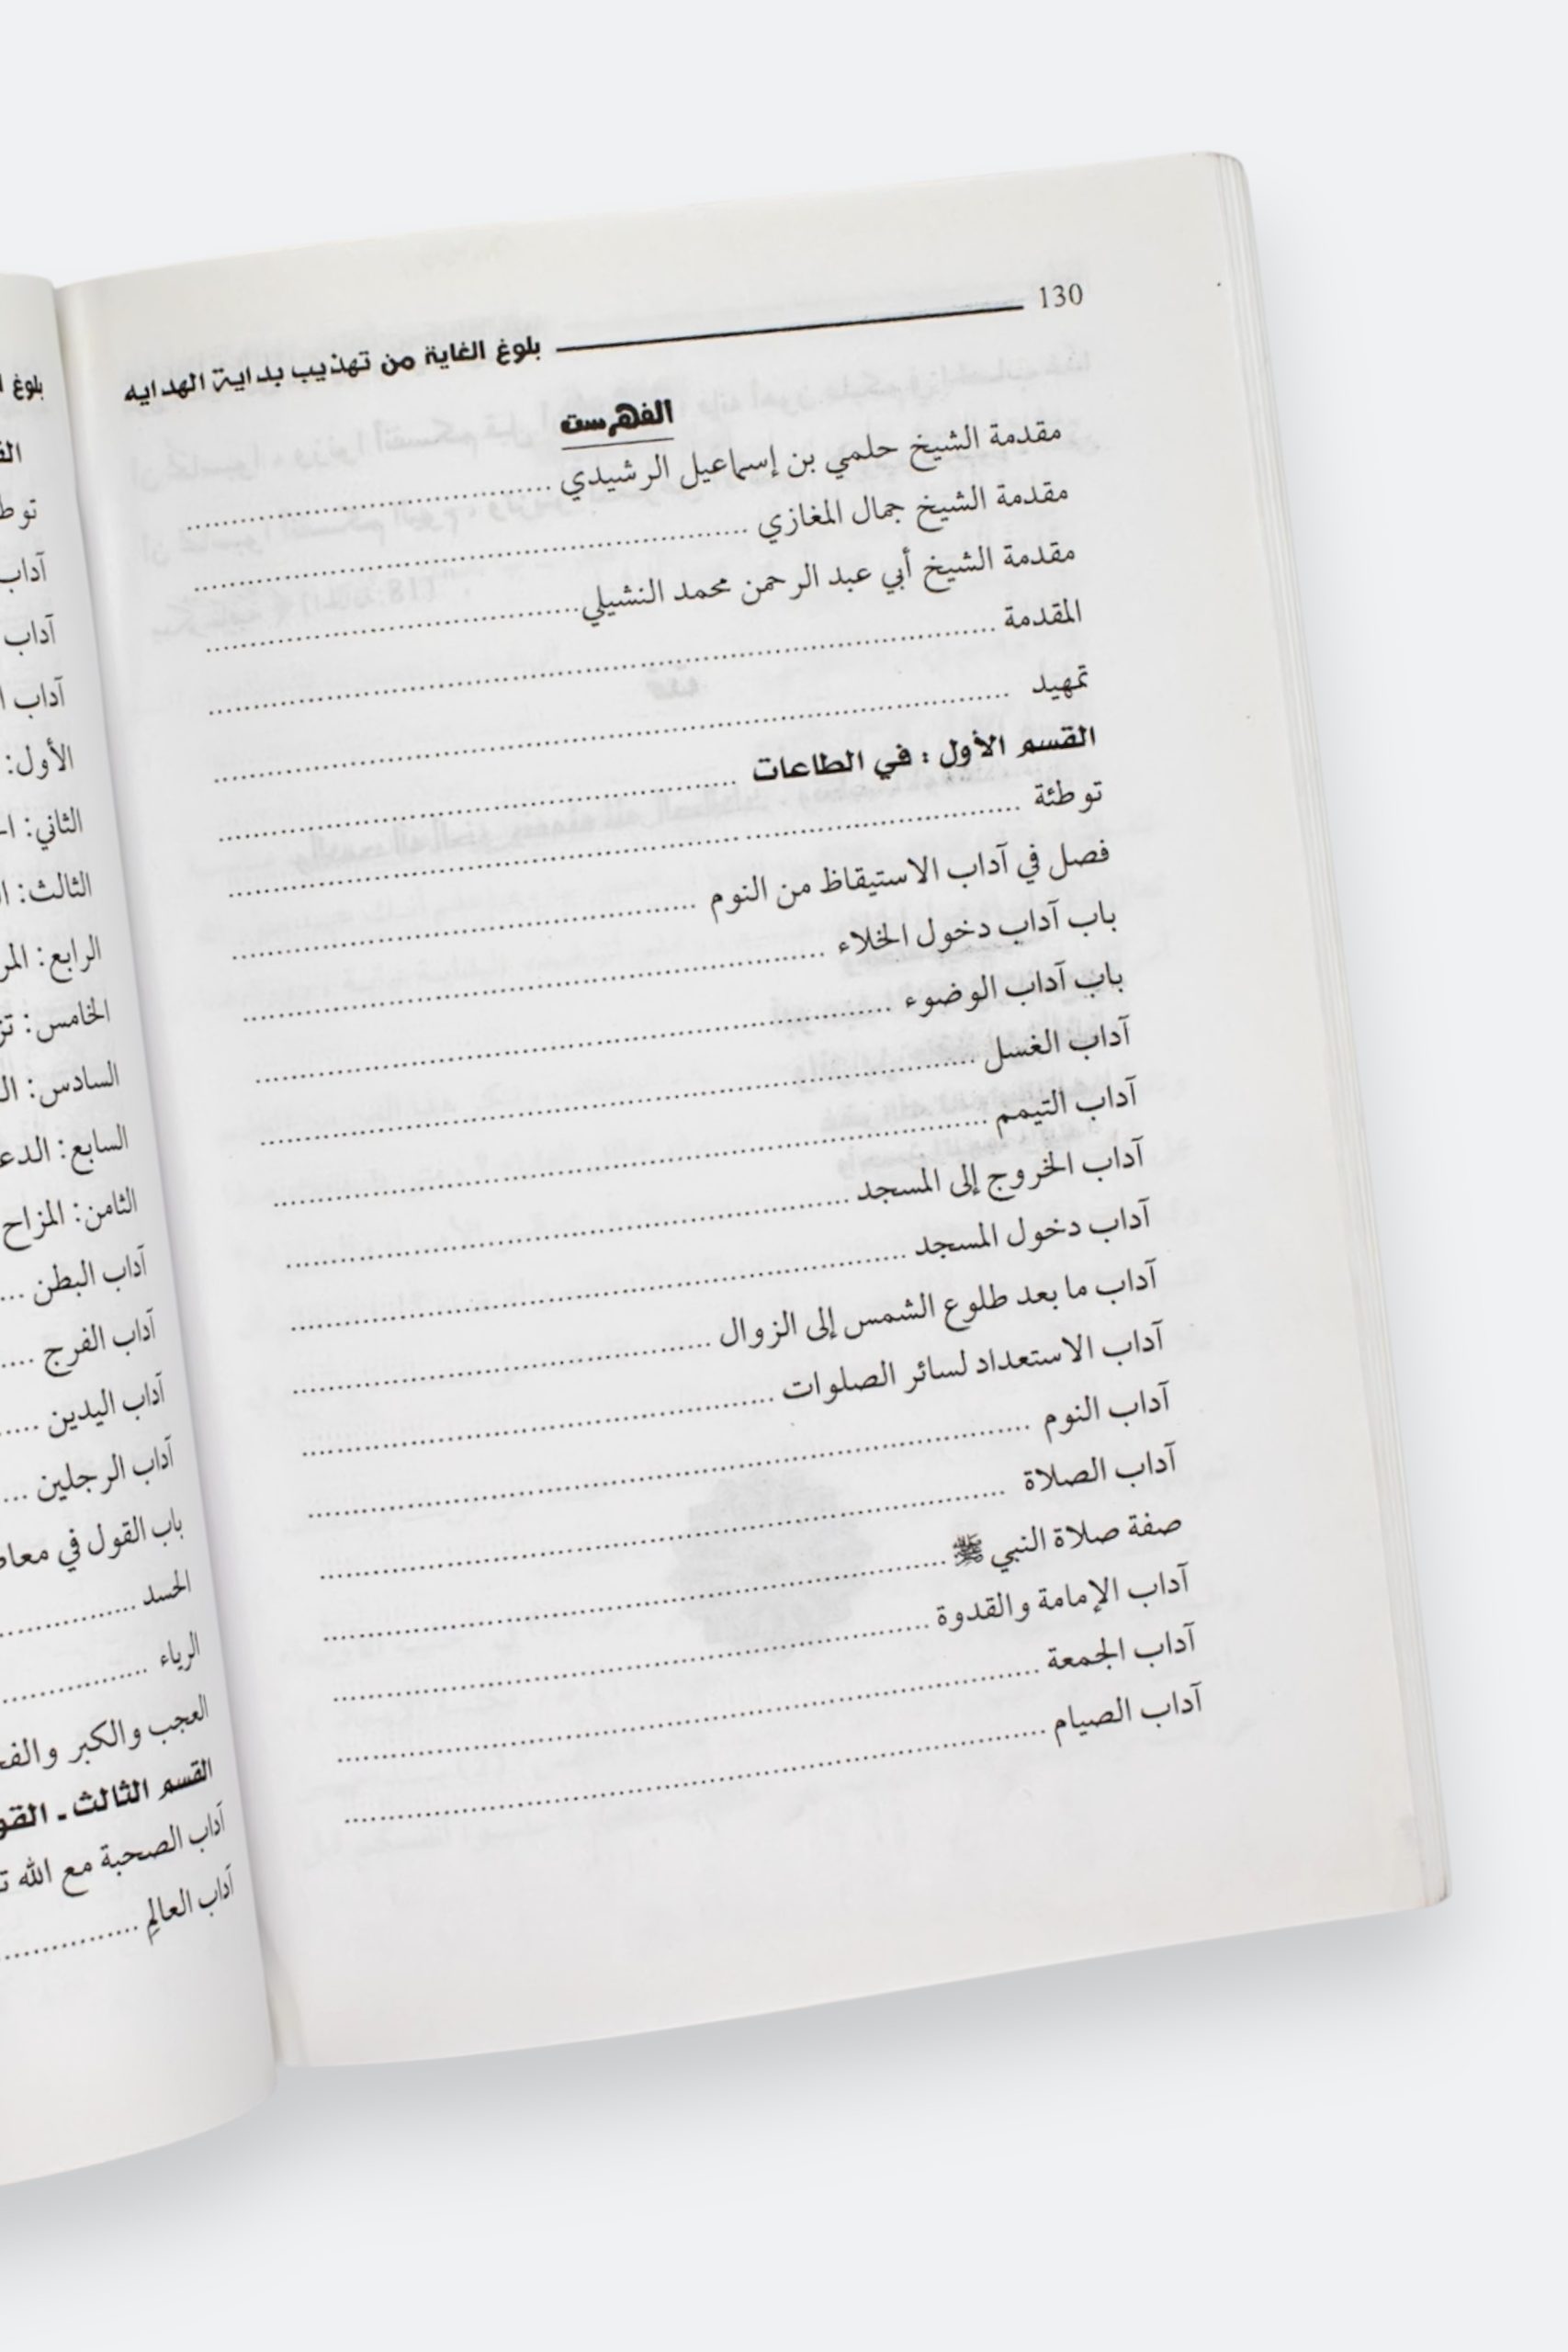 130
بلوغ الغاية من تهذيب بداية الهدايه
الفهرست
مقدمة الشيخ حلمي بن إسماعيل الرشيدي
مقدمة الشيخ جمال المغازي
مقدمة الشيخ أبي عبد الرحمن محمد النشيلي
المقدمة
تمهيد
القسم الأول : في الطاعات
توطئة
فصل في آداب الاستيقاظ من النوم
باب آداب دخول الخلاء
باب آداب الوضوء
آداب الغسل
آداب التيمم
آداب الخروج إلى المسجد
آداب دخول المسجد
آداب ما بعد طلوع الشمس إلى الزوال
آداب الاستعداد لسائر الصلوات
آداب النوم
آداب الصلاة
صفة صلاة النبي ﷺ
آداب الإمامة والقدوة
آداب الجمعة
آداب الصيام
بلوغ
آداب
آداب
آداب
الأول:
الثاني:
الثالث:
الرابع:
الخامس:
السادس:
السابع:
الثامن: المزاح
آداب البطن
آداب الفرج
آداب اليدين
آداب الرجلين
باب القول في
الحسد
الرياء
العجب والكبر
القسم الثالث ـ
آداب الصحبة مع الله
آداب العالِم